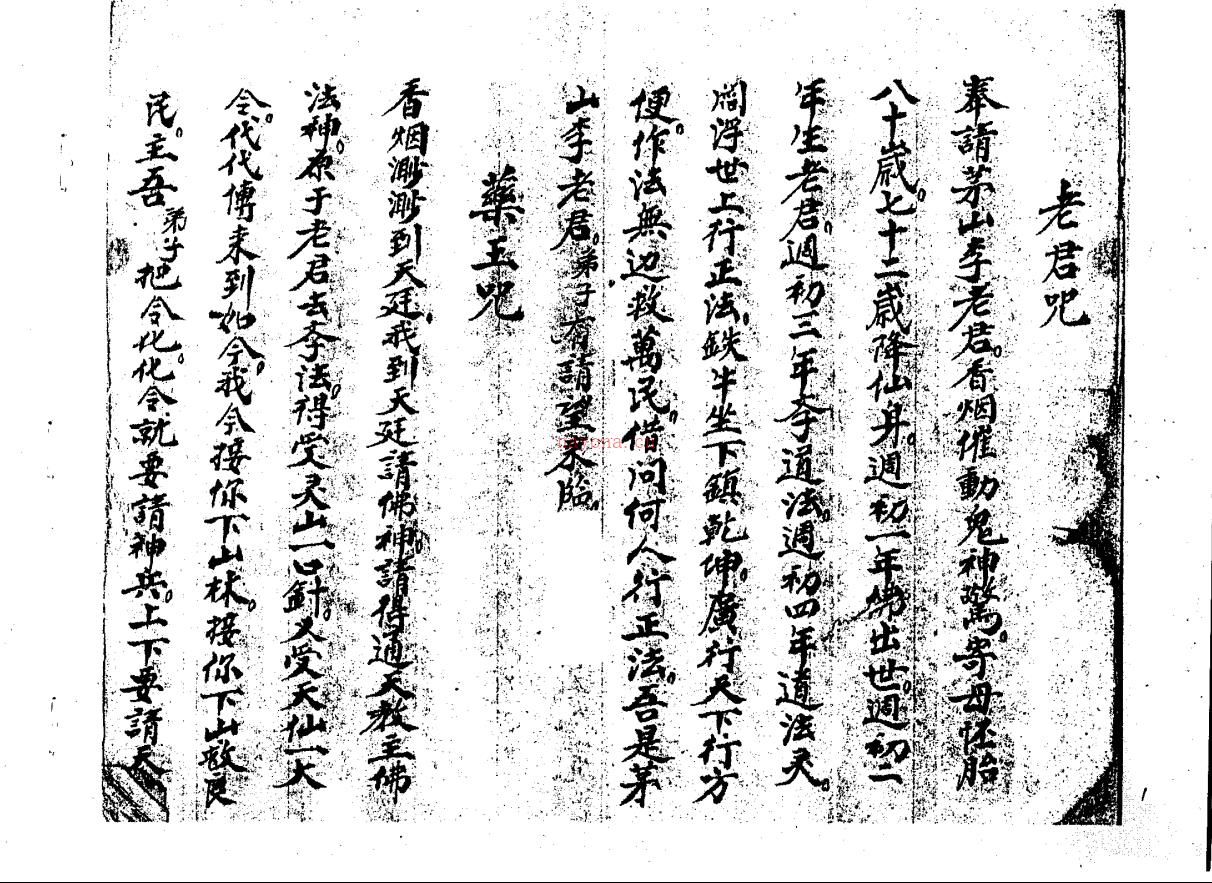 老君咒
奉請茅山李老君。香烟催動鬼神驚。寄母怀胎
八十歲。七十二歲降仙身。週初一年佛出世。週初二
年生老君。週初三年斈道法。週初四年道法灵。
閻浮世上行正法。鉄牛坐下鎮乾坤。廣行天下行方
便。作法無边救萬民。借問何人行正法。吾是茅
山李老君。弟子有請望來臨。
藥王咒
香烟渺渺到天廷。我到天廷請佛神。請得通天教主佛
法神。原于老君去斈法。得受灵山一口針。又受天仙一大
令。代代傳来到如今。我今接你下山林。接你下山救良
民。主吾弟子把令化。化令就要請神兵。上下要請天
1